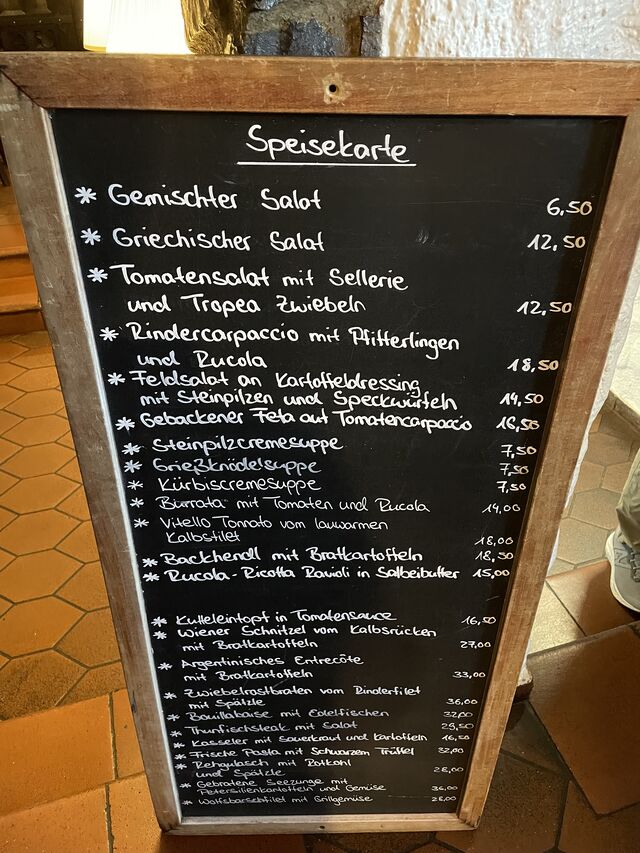 Speisekarte
* Gemischter Salat 6,50
* Griechischer Salat 12,50
* Tomatensalat mit Sellerie
und Tropea Zwiebeln 12,50
* Rindercarpaccio mit Pfifferlingen
und Rucola 18,50
* Feldsalat an Kartoffeldressing
mit Steinpilzen und Speckwürfeln 14,50
* Gebackener Feta auf Tomatencarpaccio 16,50
* Steinpilzcremesuppe 7,50
* Grießknödelsuppe 7,50
* Kürbiscremesuppe 7,50
* Burrata mit Tomaten und Rucola 14,00
* Vitello Tonnato vom lauwarmen
Kalbsfilet 18,00
* Backhendl mit Bratkartoffeln 18,50
* Rucola-Ricotta Ravioli in Salbeibutter 15,00
* Kutteleintopf in Tomatensauce 16,50
* Wiener Schnitzel vom Kalbsrücken
mit Bratkartoffeln 27,00
* Argentinisches Entrecôte
mit Bratkartoffeln 33,00
* Zwiebelrostbraten vom Rinderfilet
mit Spätzle 36,00
* Bouillabaise mit Edelfischen 32,00
* Thunfischsteak mit Salat 28,50
* Kasseler mit Sauerkraut und Kartoffeln 16,50
* Frische Pasta mit Schwarzem Trüffel 32,00
* Rehgulasch mit Rotkohl
und Spätzle 28,00
* Gebratene Seezunge mit
Petersilienkartoffeln und Gemüse 36,00
* Wolfsbarschfilet mit Grillgemüse 28,00